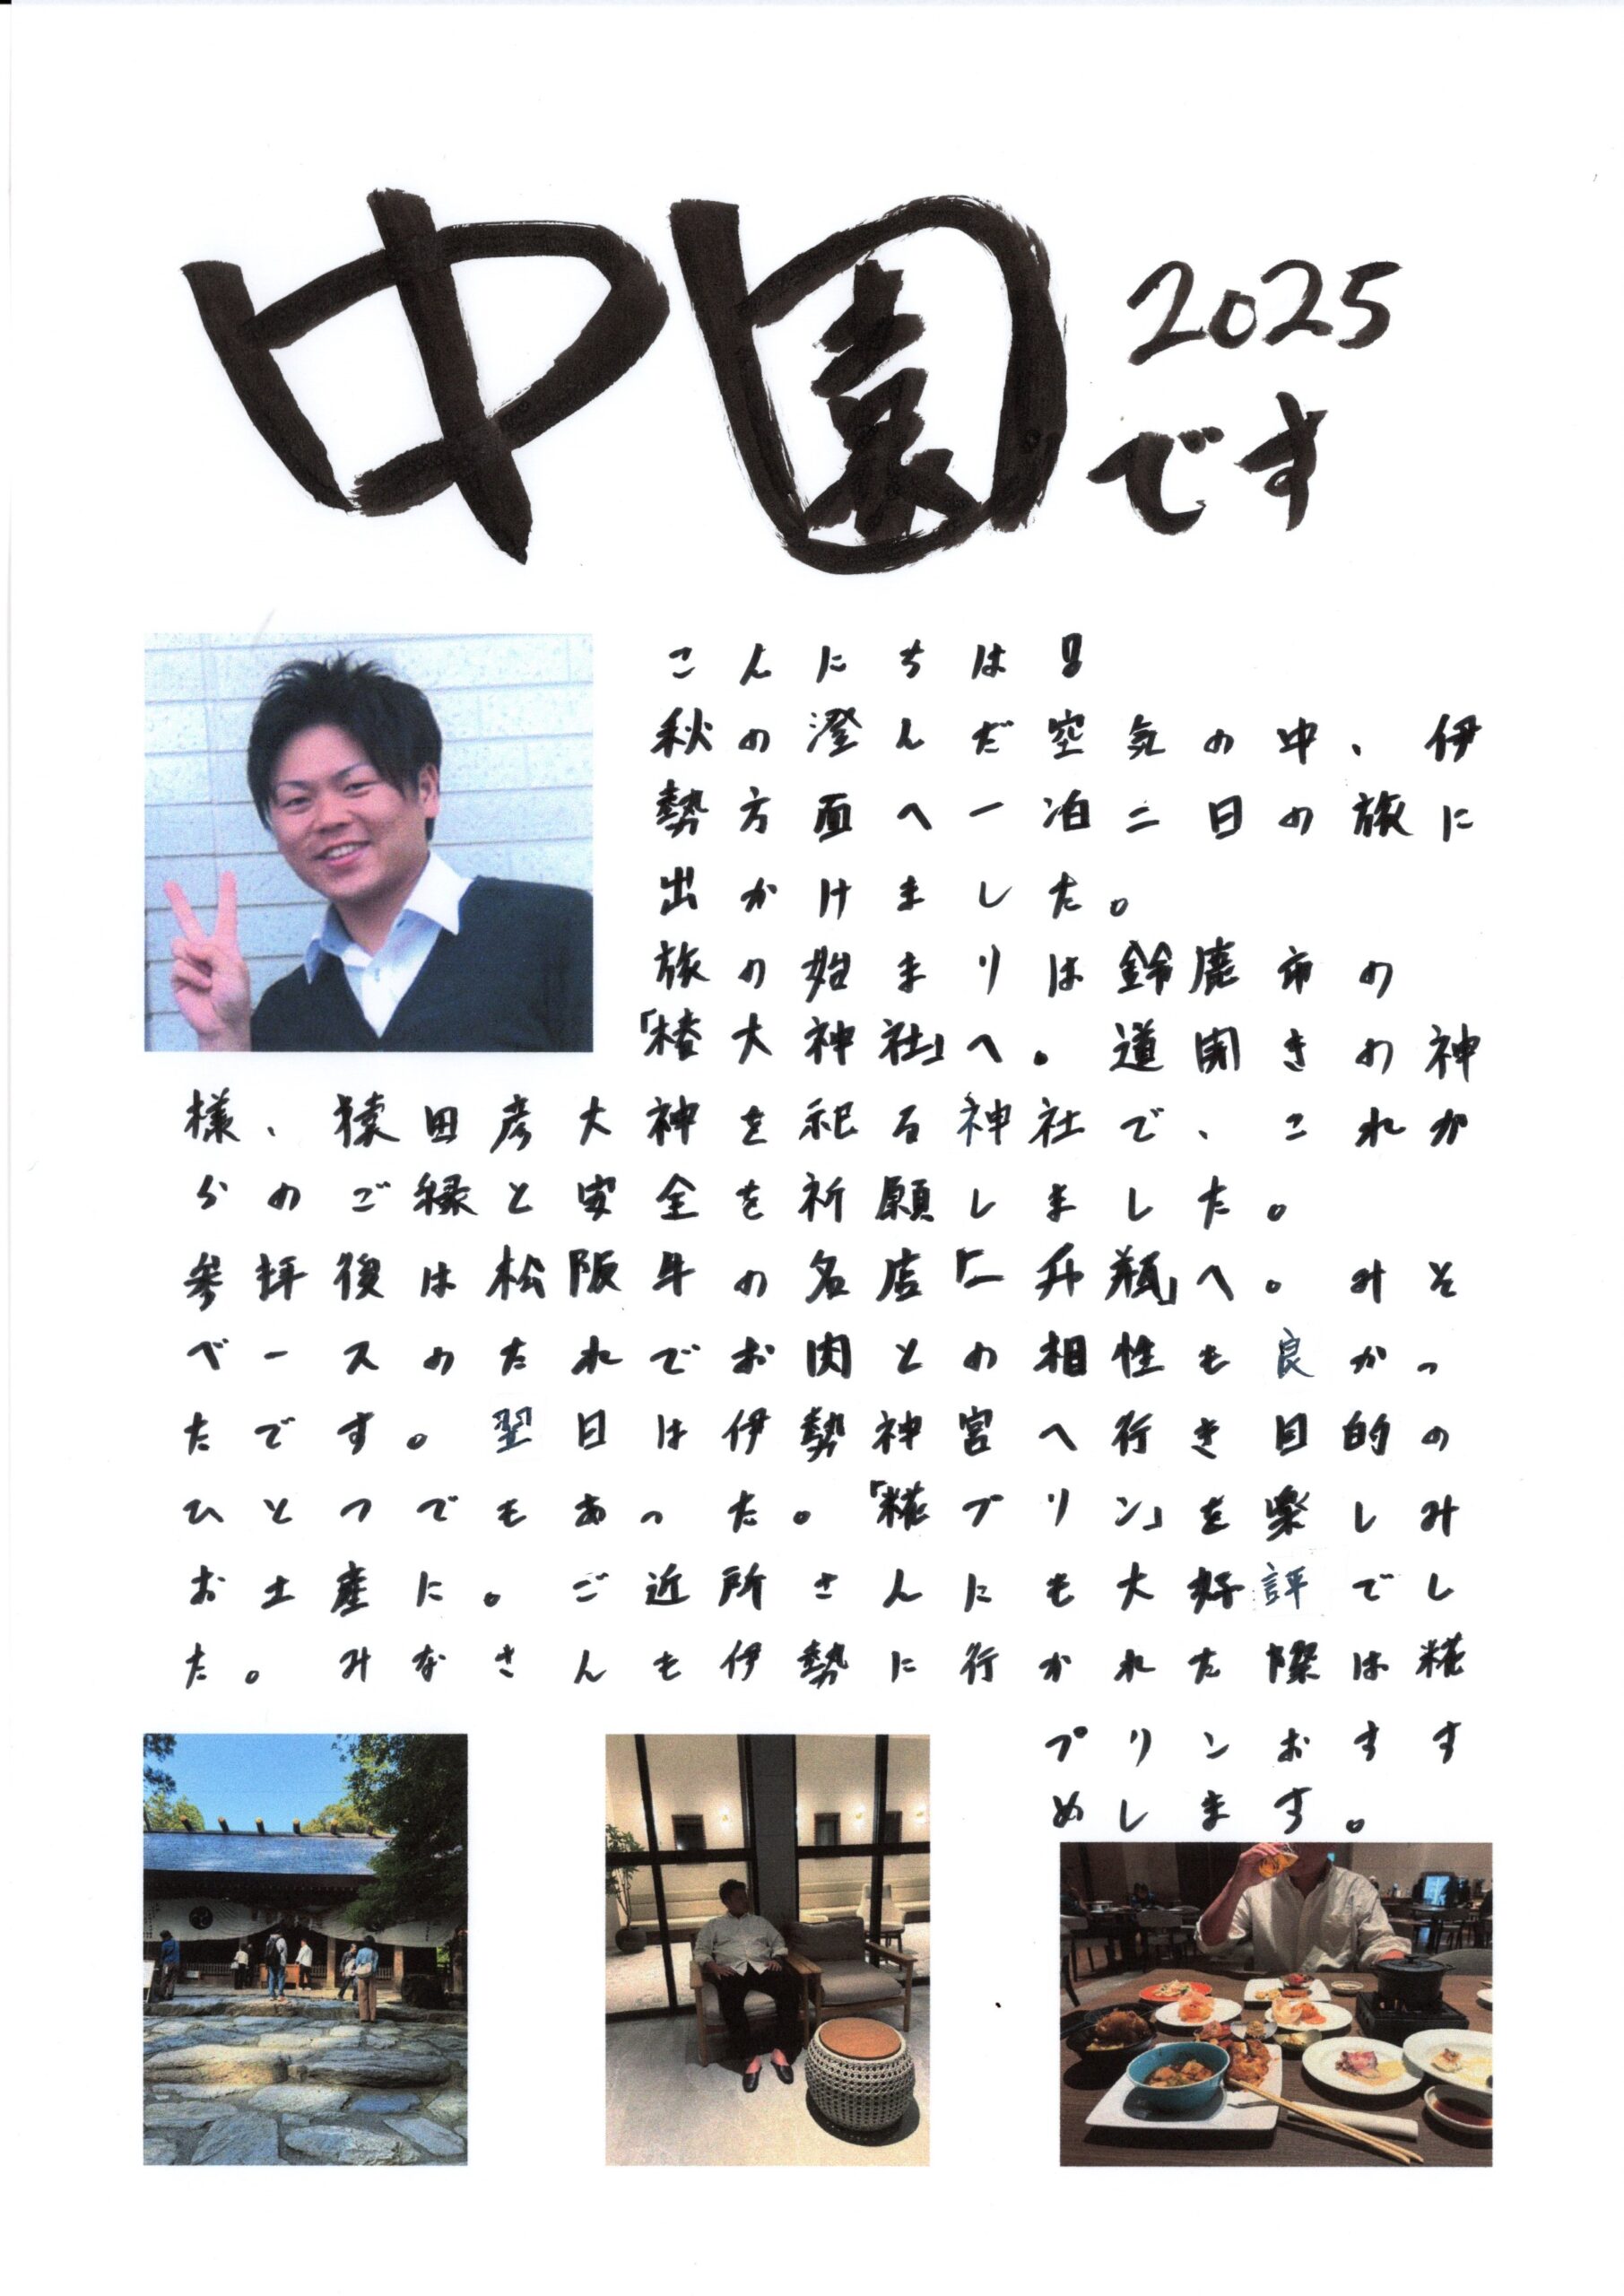 中園
2025
です
こんにちは!!
秋の澄んだ空気の中、伊
勢方面へ一泊二日の旅に
出かけました。
旅の始まりは鈴鹿市の
「椿大神社」へ。道開きの神
様、猿田彦大神を祀る神社で、これか
らのご縁と安全を祈願しました。
参拝後は松阪牛の名店「一升瓶」へ。みそ
ベースのたれでお肉との相性も良かっ
たです。翌日は伊勢神宮へ行き目的の
ひとつでもあった。「糀プリン」を楽しみ
お土産に。ご近所さんにも大好評でし
た。みなさんも伊勢に行かれた際は糀
プリンおすす
めします。